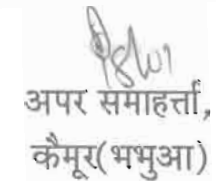 अपर समाहर्त्ता,
कैमूर(भभुआ)